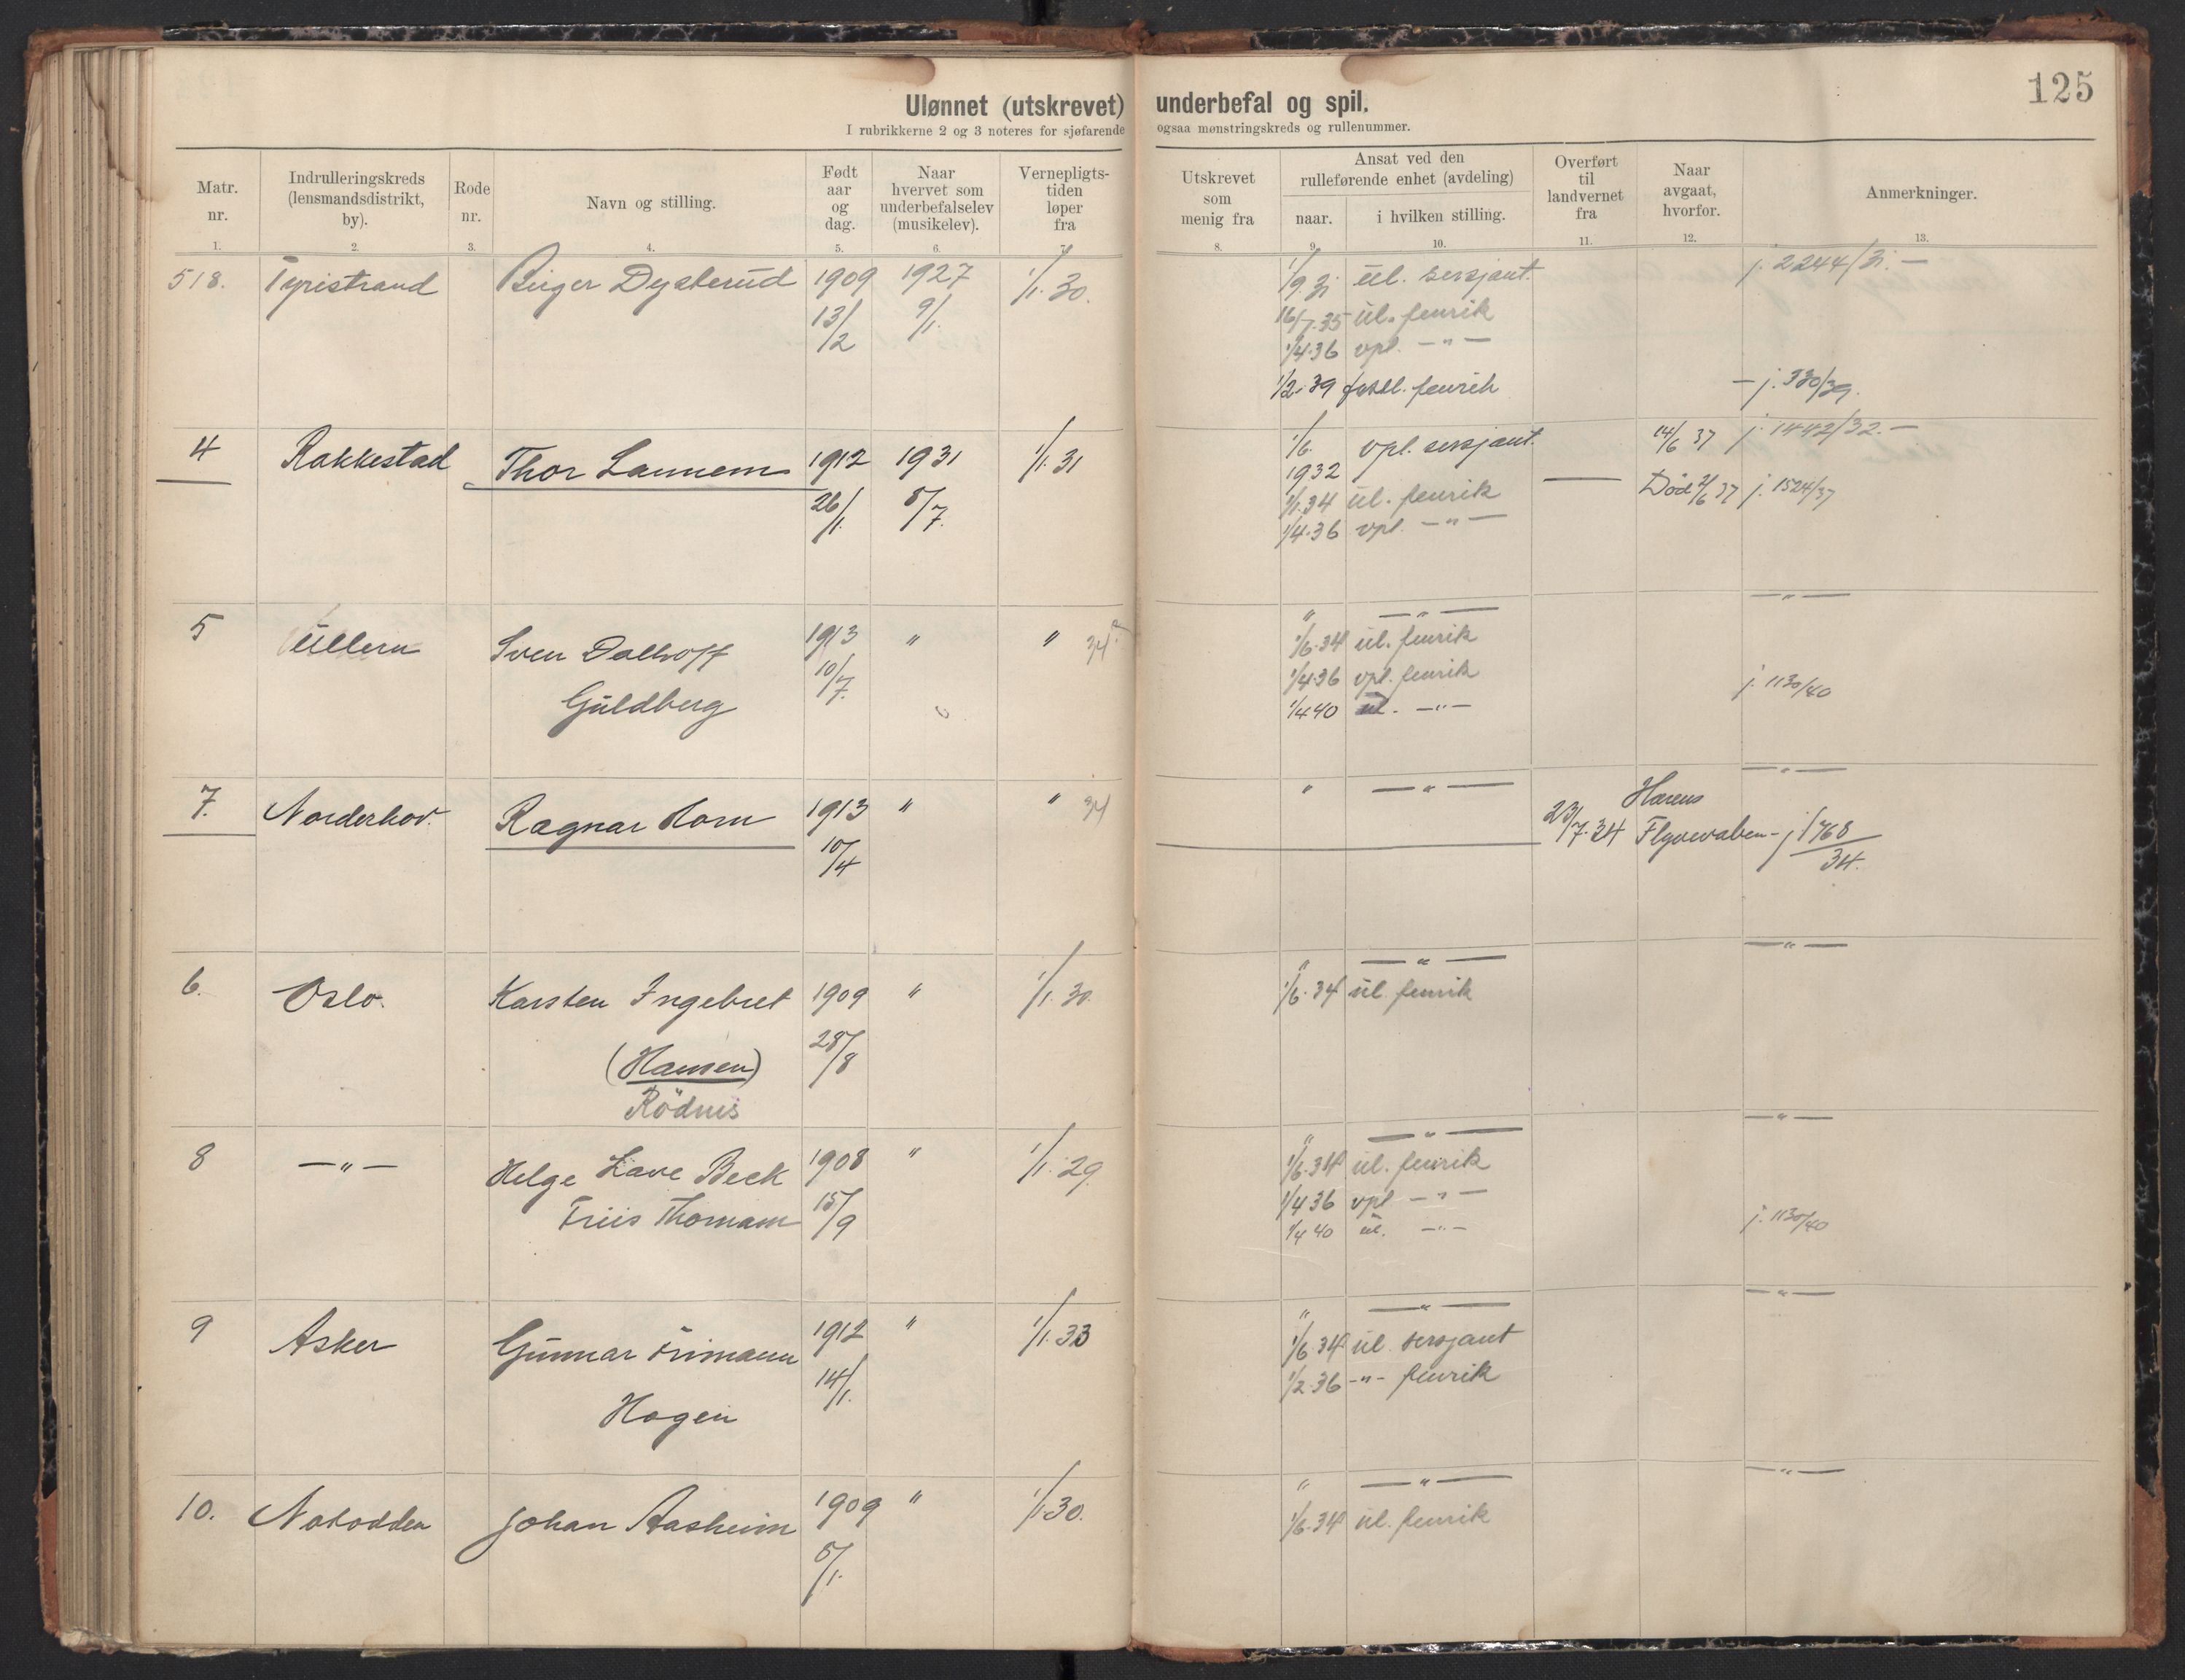 125
Ulønnet (utskrevet) underbefal og spil.
I rubrikkerne 2 og 3 noteres for sjøfarende ogsaa mønstringskreds og rullenummer.
Matr. nr. Indrulleringskreds (lensmandsdistrikt, by). Rode nr. Navn og stilling. Født aar og dag. Naar hvervet som underbefalselev (musikelev). Vernepligts-tiden løper fra Utskrevet som menig fra Ansat ved den rulleførende enhet (avdeling) naar. i hvilken stilling. Overført til landvernet fra Naar avgaat, hvorfor. Anmerkninger.
1. 2. 3. 4. 5. 6. 7. 8. 9. 10. 11. 12. 13.
518. Tyristrand Birger Dysterud 1909 1927 1/1.30. 1/9.31 ul. sersjant. j. 2244/31. —
13/2 9/1. 16/7.35 ul. fenrik
1/4.36 vpl. — " —
1/2.39 fenrik — j. 330/39.
4 Rakkestad Thor Lannem 1912 1931 1/1.31 1/6. 1932 vpl. sersjant. 14/6 37 j. 1442/32. —
26/1. 5/7. 1/1.34 ul. fenrik — Død 2/6 37 j. 1524/37
1/4.36 vpl. — " —
5 Ullern Sven Dalhoff 1913 " " 34 " — " — — " —
10/7. 1/6.34 ul. fenrik
Guldberg 1/4.36 vpl. fenrik j. 1130/40
1/4 40 ul. — " —
7. Norderhov. Ragnar Horn 1913 " " 34 " — " — — " —
10/4 23/7.34 Hærens Flyvevaben - j. 1768/34.
6. Oslo. Karsten Ingebret 1909 " 1/1.30. " — " — — " —
28/8 1/6.34 ul. fenrik
(Hansen)
Rödnis
8 — " — Helge Lave Beck 1908 " 1/1.29. " — " — — " —
Friis Thomam 15/9 1/6.34 ul. fenrik
1/4 36 vpl — " —
1/4 40 ul. — " — j. 1130/40
9 Asker Gunnar Frimann 1912 " 1/1.33 " — " — — " —
14/1. 1/6.34 ul. sersjant
Hagen 1/2.36 - " - fenrik
10. Notodden Johan Aasheim 1909 " 1/1.30. " — " — — " —
5/1. 1/6.34 ul. fenrik